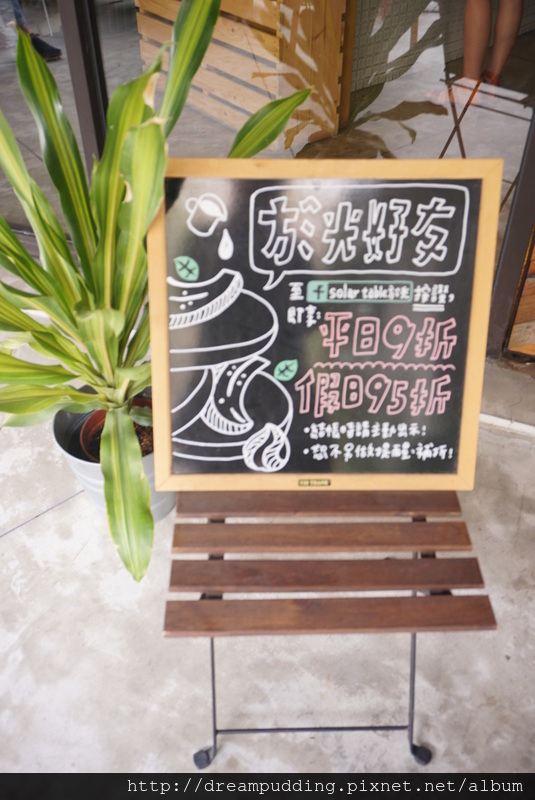 於光好友
至 f solar table於光 按讚,
即享:
平日9折
假日95折
·結帳時請主動出示!
·恕不另做優惠、補折!
http://dreampudding.pixnet.net/album